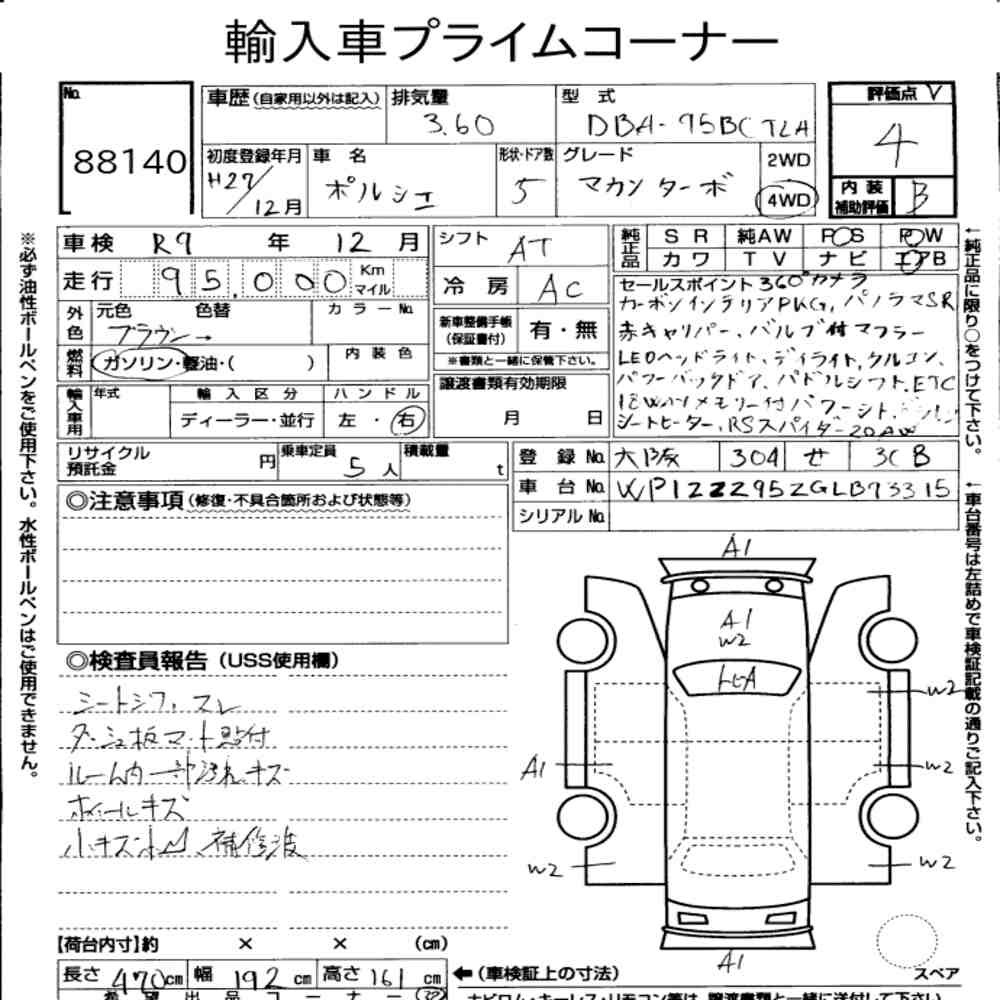 輸入車プライムコーナー
No.
88140
車歴(自家用以外は記入) 排気量 3.60
型式 DBA-95BCTLA
評価点 V 4
初度登録年月 H27/12月
車名 ポルシェ
形状・ドア数 5
グレード マカンターボ
2WD
4WD
内装補助評価 B
車検 R9年 12月
走行 95,000 Km マイル
外色 元色 色替 カラーNo.
ブラウン→
燃料 ガソリン・軽油・( ) 内装色
輸入車用 年式 輸入区分 ハンドル
ディーラー・並行 左・右
シフト AT
冷房 AC
新車整備手帳(保証書付) 有・無
※書類と一緒に保管下さい。
譲渡書類有効期限
月 日
純正品 SR 純AW POS POW
カワ TV ナビ エアB
セールスポイント 360°カメラ
カーボンインテリアPKG, パノラマSR
赤キャリパー、バルブ付マフラー
LEDヘッドライト、デイライト,クルコン、
パワーバックドア、パドルシフト,ETC
18wayメモリー付パワーシート,
シートヒーター、RSスパイダー20AW
リサイクル預託金 円
乗車定員 5人
積載量 t
登録No. 大阪 304 せ 3C8
車台No. WP1ZZZ95ZGLB73315
シリアルNo.
◎注意事項(修復・不具合箇所および状態等)
◎検査員報告(USS使用欄)
シートシワ,スレ
ダッシュ板マット貼付
ルーム内一部汚れキズ
ホイールキズ
小キズ凹、補修波
A1
A1
W2
W2
A1
W2
W2
W2
A1
スペア
【荷台内寸】約 × × (cm)
長さ 470cm 幅 192cm 高さ 161cm
←(車検証上の寸法)
希望出品コーナー
ナビロム・キーレス・リモコン等は、譲渡書類と一緒に送付して下さい
※必ず油性ボールペンをご使用下さい。水性ボールペンはご使用できません。
←純正品に限り○をつけて下さい。
←車台番号は左詰めで車検証記載の通りご記入下さい。